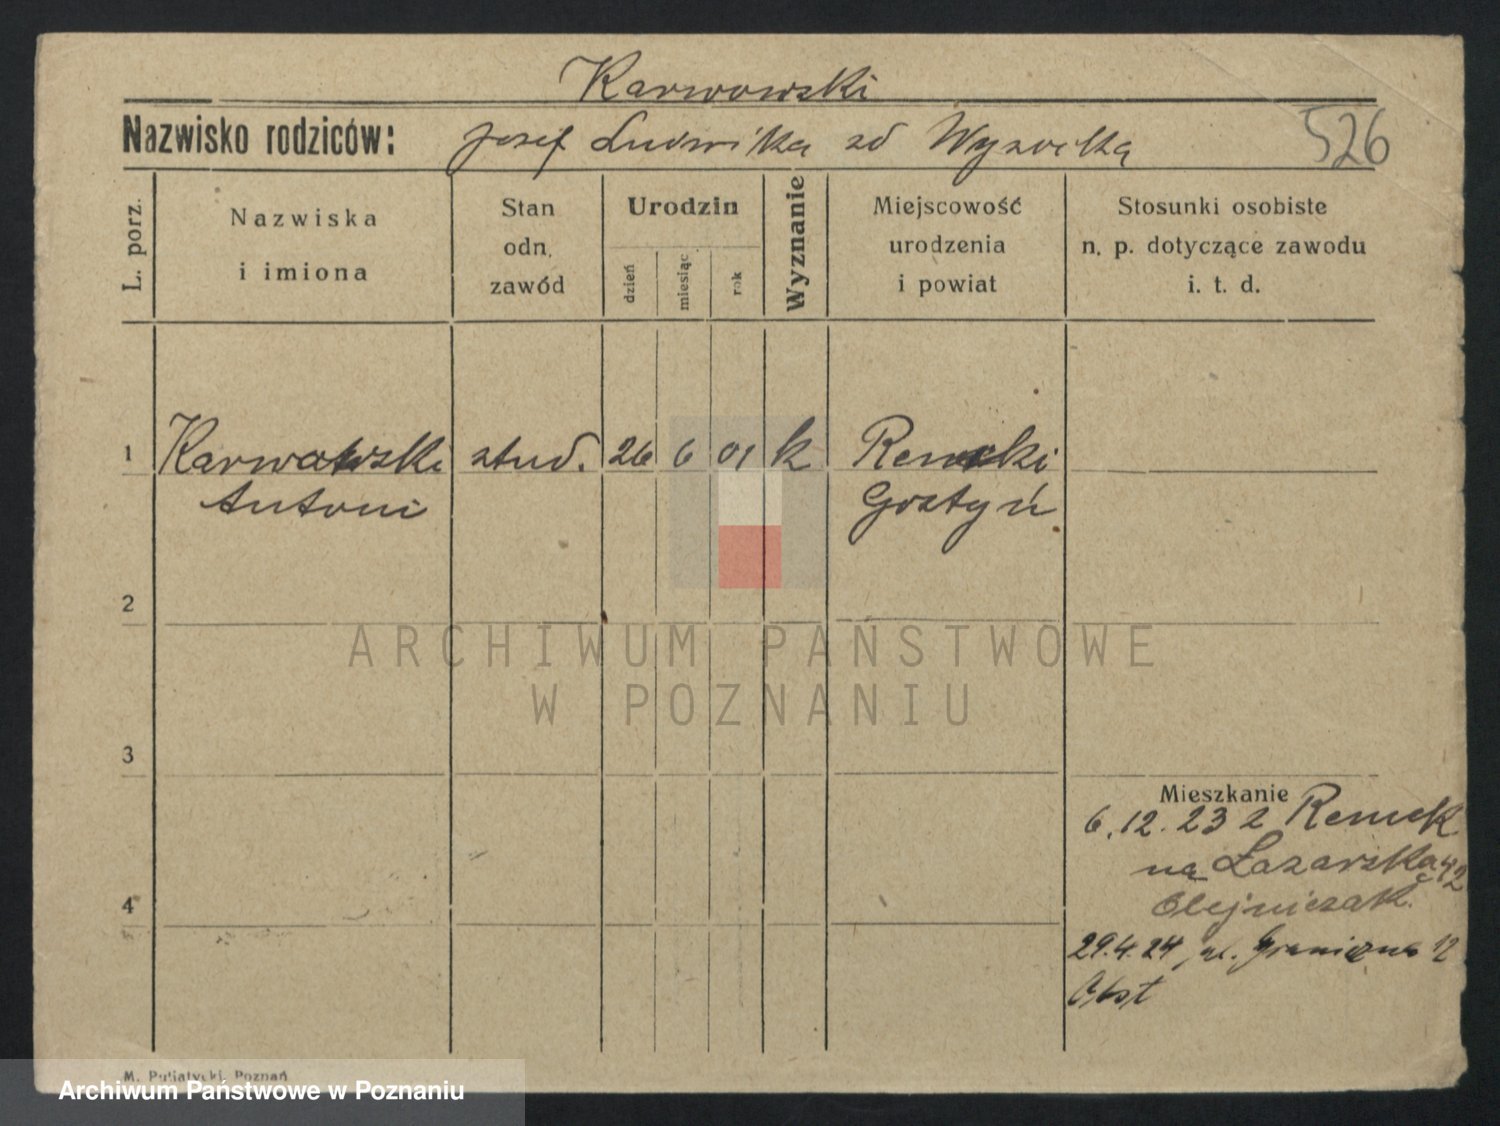 Karwowski
Nazwisko rodziców: Josef Ludwika zd
526
L. porz.
Nazwiska
i imiona
Stan
odn.
zawód
Urodzin
dzień
miesiąc
rok
Wyznanie
Miejscowość
urodzenia
i powiat
Stosunki osobiste
n. p. dotyczące zawodu
i. t. d.
1 Karwowski stud. 26 6 01 k
Antoni Gostyń
2
ARCHIWUM PAŃSTWOWE
W POZNANIU
3
Mieszkanie
6.12.23 z
na Łazarską 42
4
Olejniczak.
29.4.24 ul. Graniczna 12
M. Putiatycki, Poznań
Archiwum Państwowe w Poznaniu